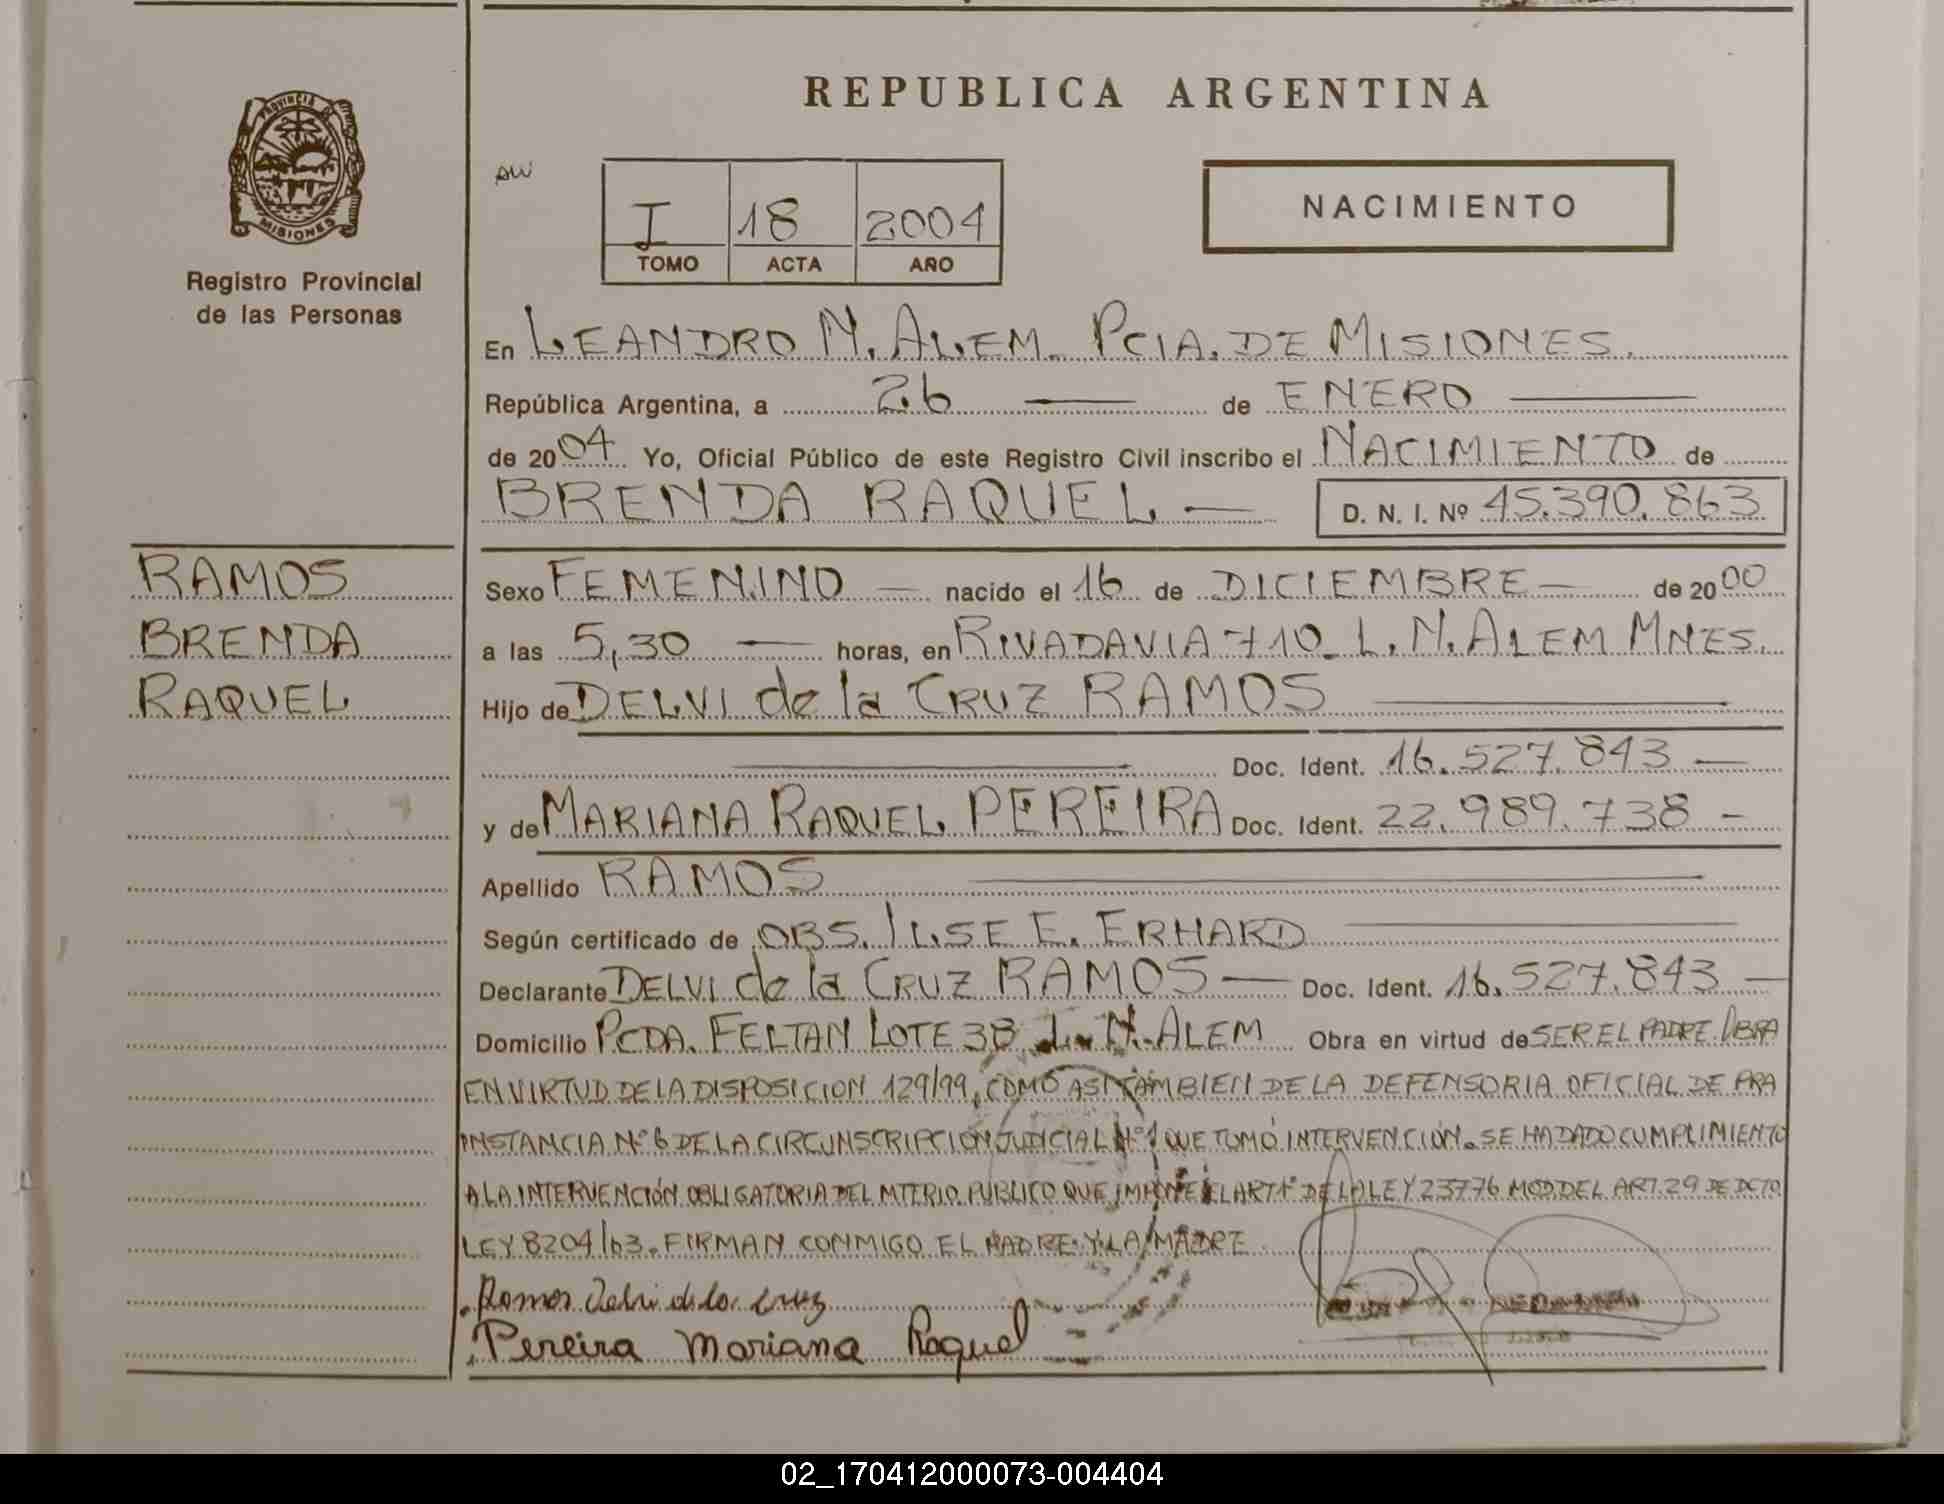 REPUBLICA ARGENTINA
PROVINCIA DE MISIONES
Registro Provincial
de las Personas
AW
I 18 2004
TOMO ACTA AÑO
NACIMIENTO
En LEANDRO N. ALEM PCIA. DE MISIONES.
República Argentina, a 26 de ENERO
de 2004 Yo, Oficial Público de este Registro Civil inscribo el NACIMIENTO de
BRENDA RAQUEL D. N. I. Nº 45.390.863
RAMOS
BRENDA
RAQUEL
Sexo FEMENINO nacido el 16 de DICIEMBRE de 2000
a las 5,30 horas, en RIVADAVIA 710 L. N. ALEM MNES.
Hijo de DELVI de la CRUZ RAMOS
Doc. Ident. 16.527.843
y de MARIANA RAQUEL PEREIRA Doc. Ident. 22.989.738
Apellido RAMOS
Según certificado de OBS. ILSE E. ERHARD
Declarante DELVI de la CRUZ RAMOS Doc. Ident. 16.527.843
Domicilio PCDA. FELTAN LOTE 38 L. N. ALEM Obra en virtud de SER EL PADRE. OBRA
EN VIRTUD DE LA DISPOSICION 129/99, COMO ASI TAMBIEN DE LA DEFENSORIA OFICIAL DE PRA
INSTANCIA Nº 6 DE LA CIRCUNSCRIPCION JUDICIAL Nº 1 QUE TOMÓ INTERVENCIÓN. SE HA DADO CUMPLIMIENTO
A LA INTERVENCIÓN OBLIGATORIA DEL MTERIO. PUBLICO QUE IMPONE EL ART 1º DE LA LEY 23776 MOD DEL ART. 29 DE DCTO
LEY 8204/63. FIRMAN CONMIGO EL PADRE Y LA MADRE
Ramos Delvi de la Cruz
Pereira Mariana Raquel
02_170412000073-004404